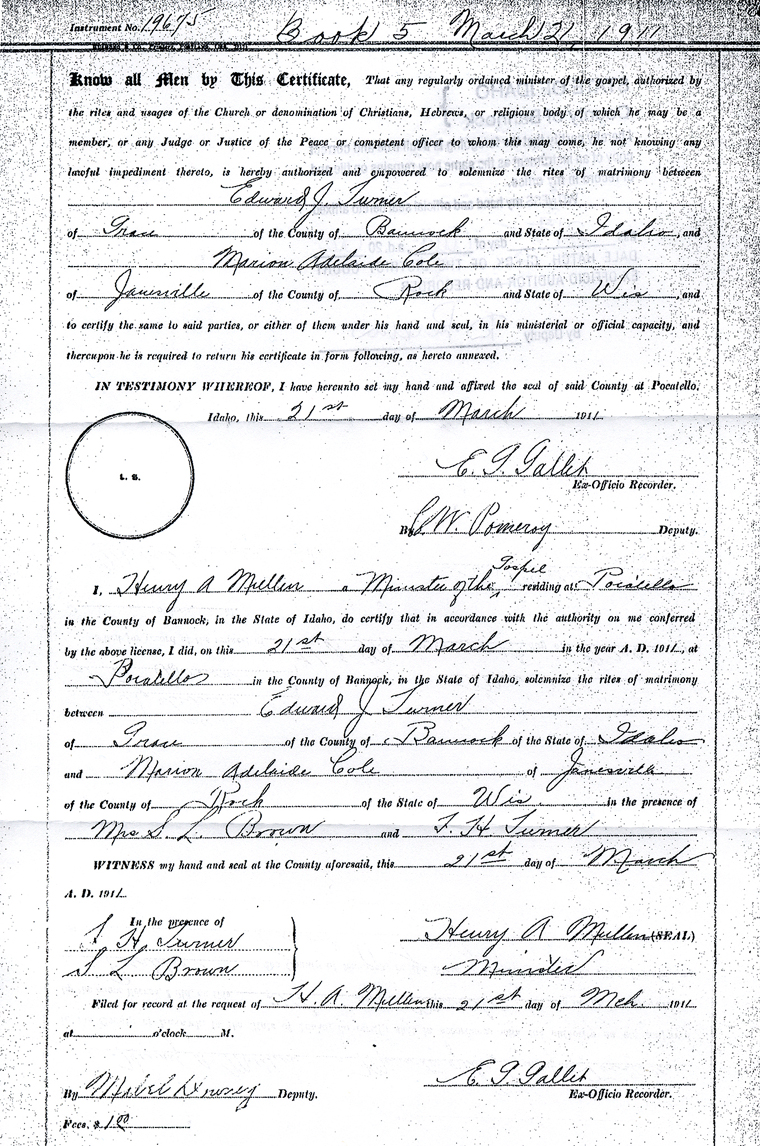 Instrument No. 19675 Book 5 March 21, 1911
Know all Men by This Certificate, That any regularly ordained minister of the gospel, authorized by
the rites and usages of the Church or denomination of Christians, Hebrews, or religious body of which he may be a
member, or any Judge or Justice of the Peace or competent officer to whom this may come, he not knowing any
lawful impediment thereto, is hereby authorized and empowered to solemnize the rites of matrimony between
Edward J. Turner
of Grace of the County of Bannock and State of Idaho, and
Marion Adelaide Cole
of Janesville of the County of Rock and State of Wis, and
to certify the same to said parties, or either of them under his hand and seal, in his ministerial or official capacity, and
thereupon he is required to return his certificate in form following, as hereto annexed.
IN TESTIMONY WHEREOF, I have hereunto set my hand and affixed the seal of said County at Pocatello,
Idaho, this 21st day of March 1911.
L. S.
E. G. Gallet
Ex-Officio Recorder.
By W. Pomeroy Deputy.
Gospel
I, Henry A Mullen a Minister of the residing at Pocatello
in the County of Bannock, in the State of Idaho, do certify that in accordance with the authority on me conferred
by the above license, I did, on this 21st day of March in the year A. D. 1911, at
Pocatello in the County of Bannock, in the State of Idaho, solemnize the rites of matrimony
between Edward J Turner
of Grace of the County of Bannock of the State of Idaho
and Marion Adelaide Cole of Janesville
of the County of Rock of the State of Wis. in the presence of
Mrs S. L. Brown and F. H. Turner
WITNESS my hand and seal at the County aforesaid, this 21st day of March
A. D. 1911.
In the presence of
F H Turner Henry A Mullen (SEAL)
S L Brown Minister
Filed for record at the request of H. A. Mullen this 21st day of Mch. 1911
at o'clock M.
E. G. Gallet
By Mabel Downey Deputy. Ex-Officio Recorder.
Fees, $ 1.00